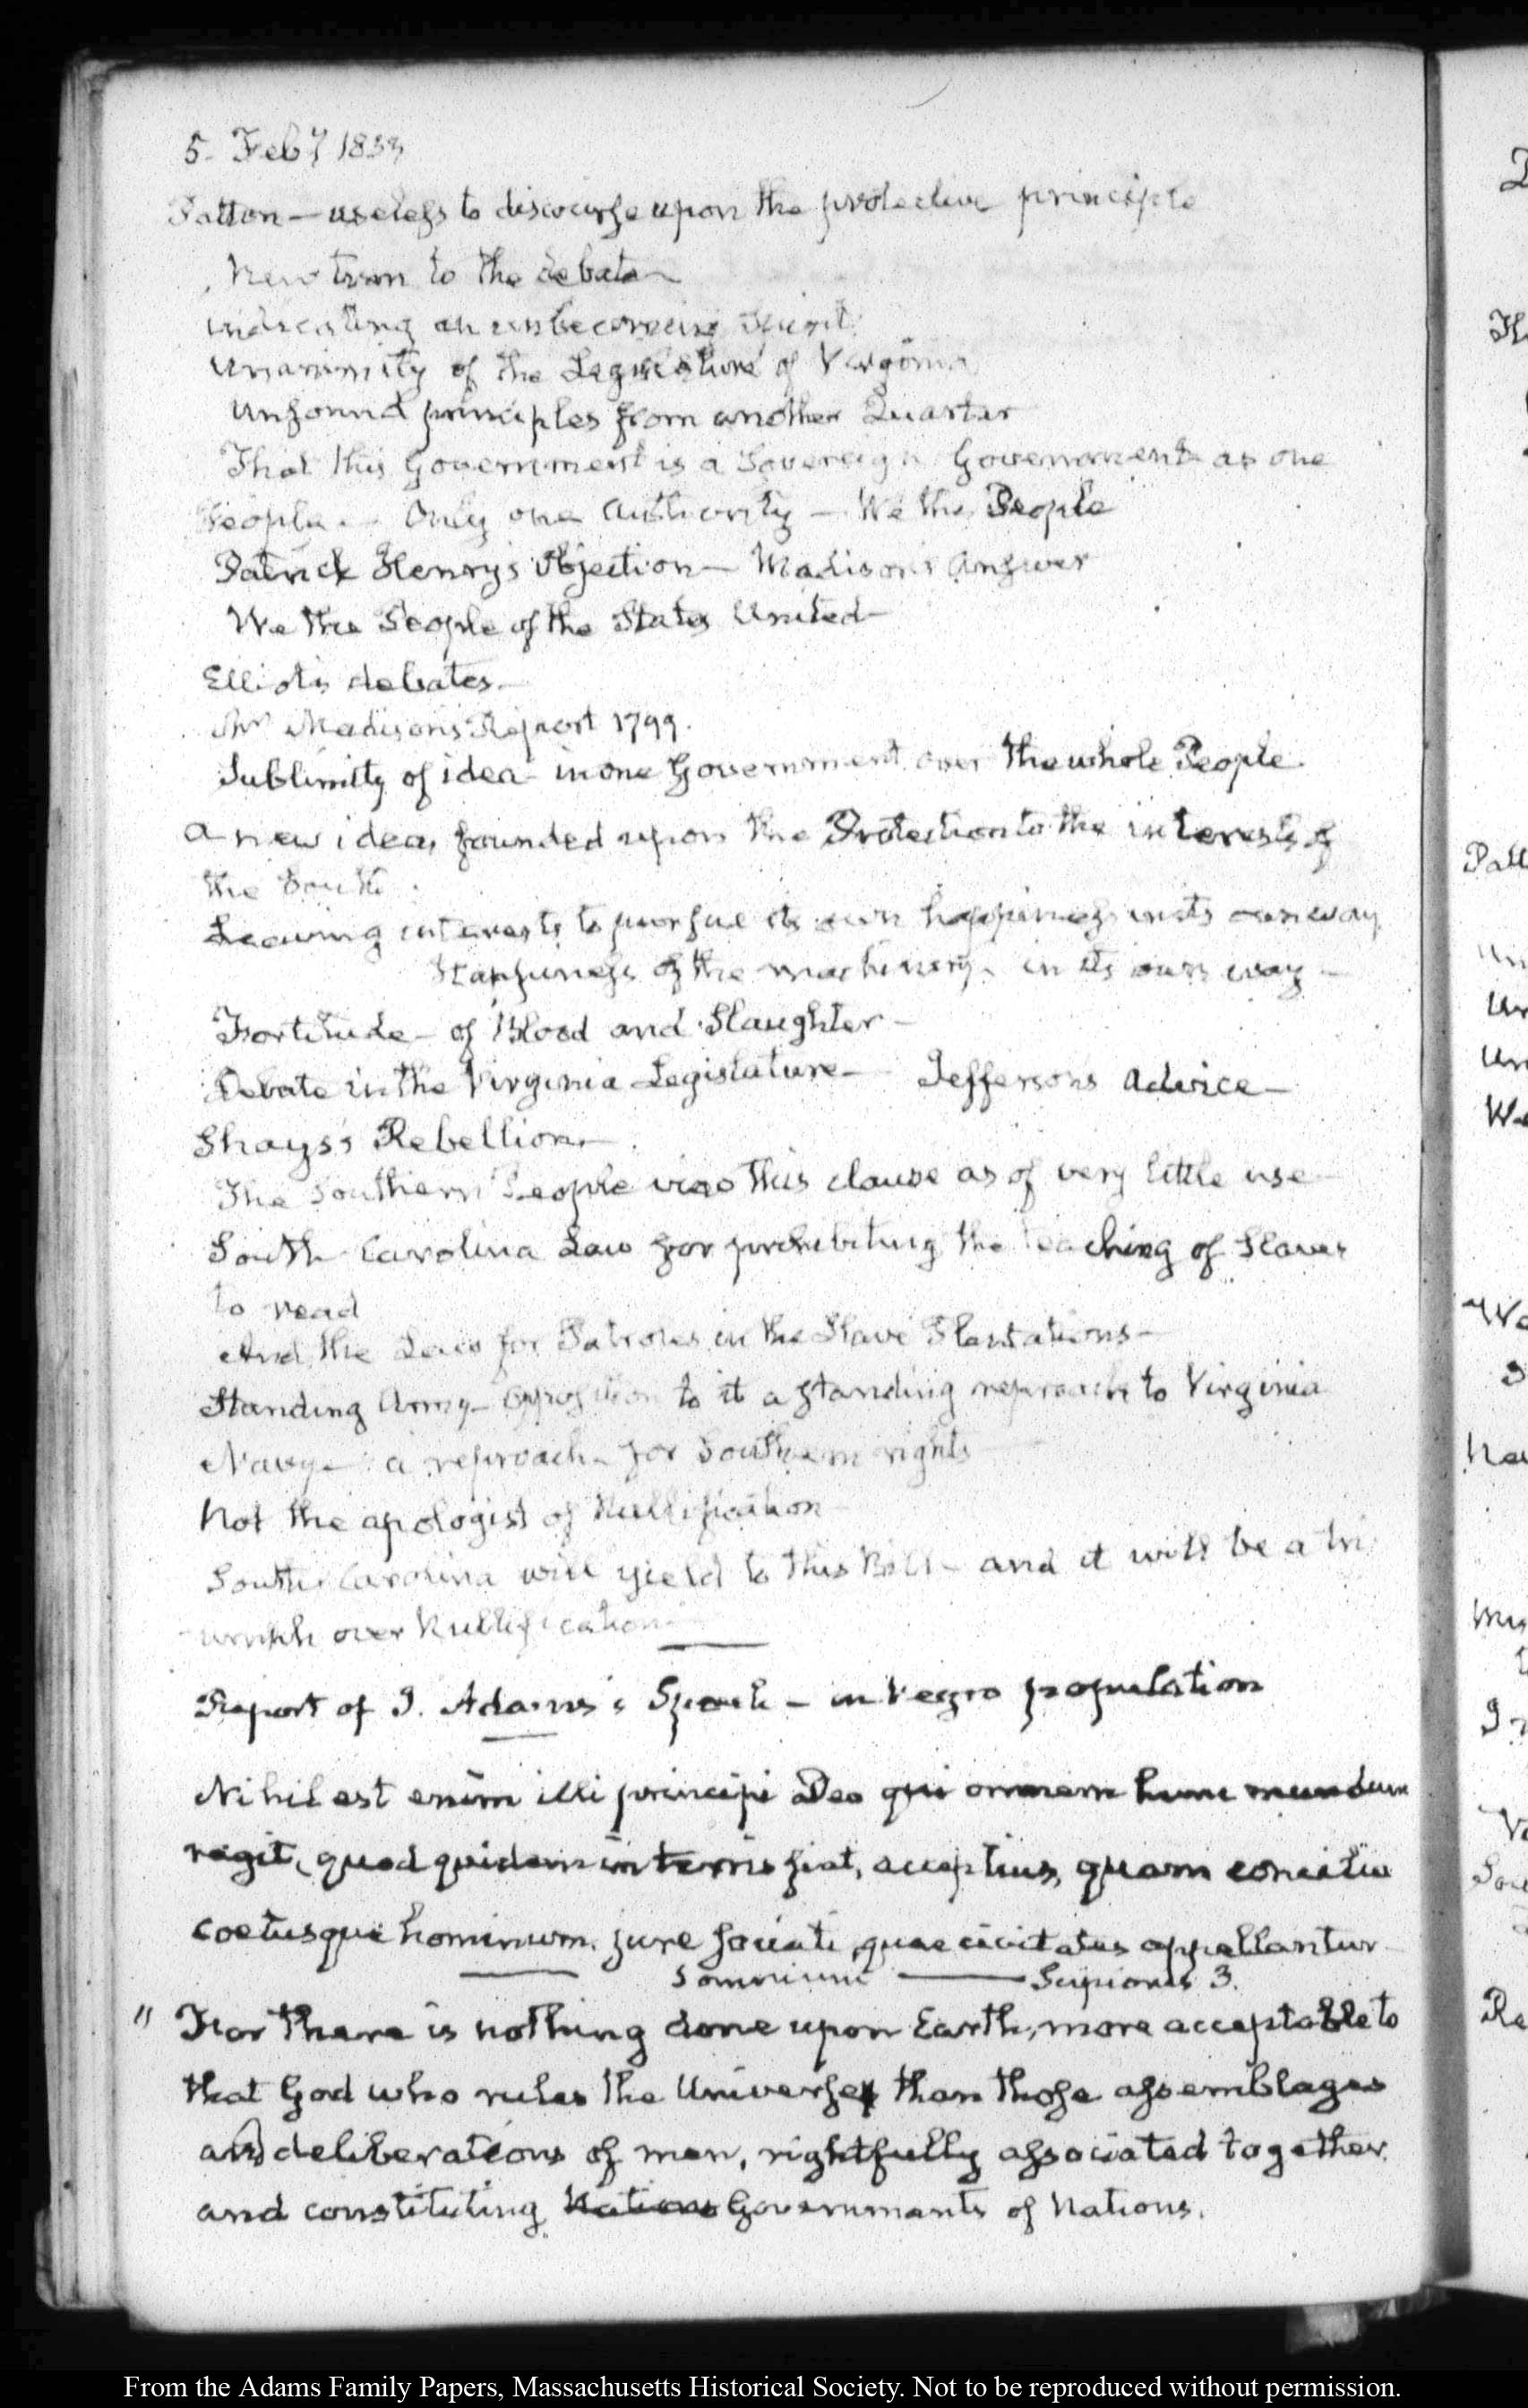 5. Feby 1833
Patton — useless to discourse upon the protective principle
New turn to the debate
indicating an unbecoming spirit
Unanimity of the Legislature of Virginia
Unsound principles from another Quarter
That this Government is a Sovereign Government as one
People — Only one Authority — We the People
Patrick Henry's Objection — Madison's Answer
We the People of the States United —
Elliot's debates —
Mr Madison's Report 1799.
Sublimity of idea in one Government over the whole People.
A new idea, founded upon the Protection to the interests of
the South.
Leaving interests to pursue its own happiness in its own way
of the machinery in its own way —
Fortitude — of Blood and Slaughter —
Debate in the Virginia Legislature — Jefferson's Advice —
Shays's Rebellion —
The Southern People view this clause as of very little use
South Carolina Law for prohibiting the teaching of Slaves
to read
And the Laws for Patroles in the Slave Plantations —
Standing Army — Opposition to it a standing reproach to Virginia
Navy — a reproach for Southern rights
Not the apologist of Nullification
South Carolina will yield to this Bill — and it will be a tri
umph over Nullification —
Report of J. Adams's Speech — in Negro population
Nihil est enim illi principi Deo qui omnem hunc mundum
regit, quod quidem in terris fiat, acceptius, quam concilia
coetusque hominum jure sociati, quae civitates appellantur
Somnium — Scipionis 3.
" For there is nothing done upon Earth, more acceptable to
that God who rules the Universe, than those assemblages
and deliberations of men, rightfully associated together
and constituting Nations Governments of Nations.
Patt
Un
Un
We
My
Re
From the Adams Family Papers, Massachusetts Historical Society. Not to be reproduced without permission.